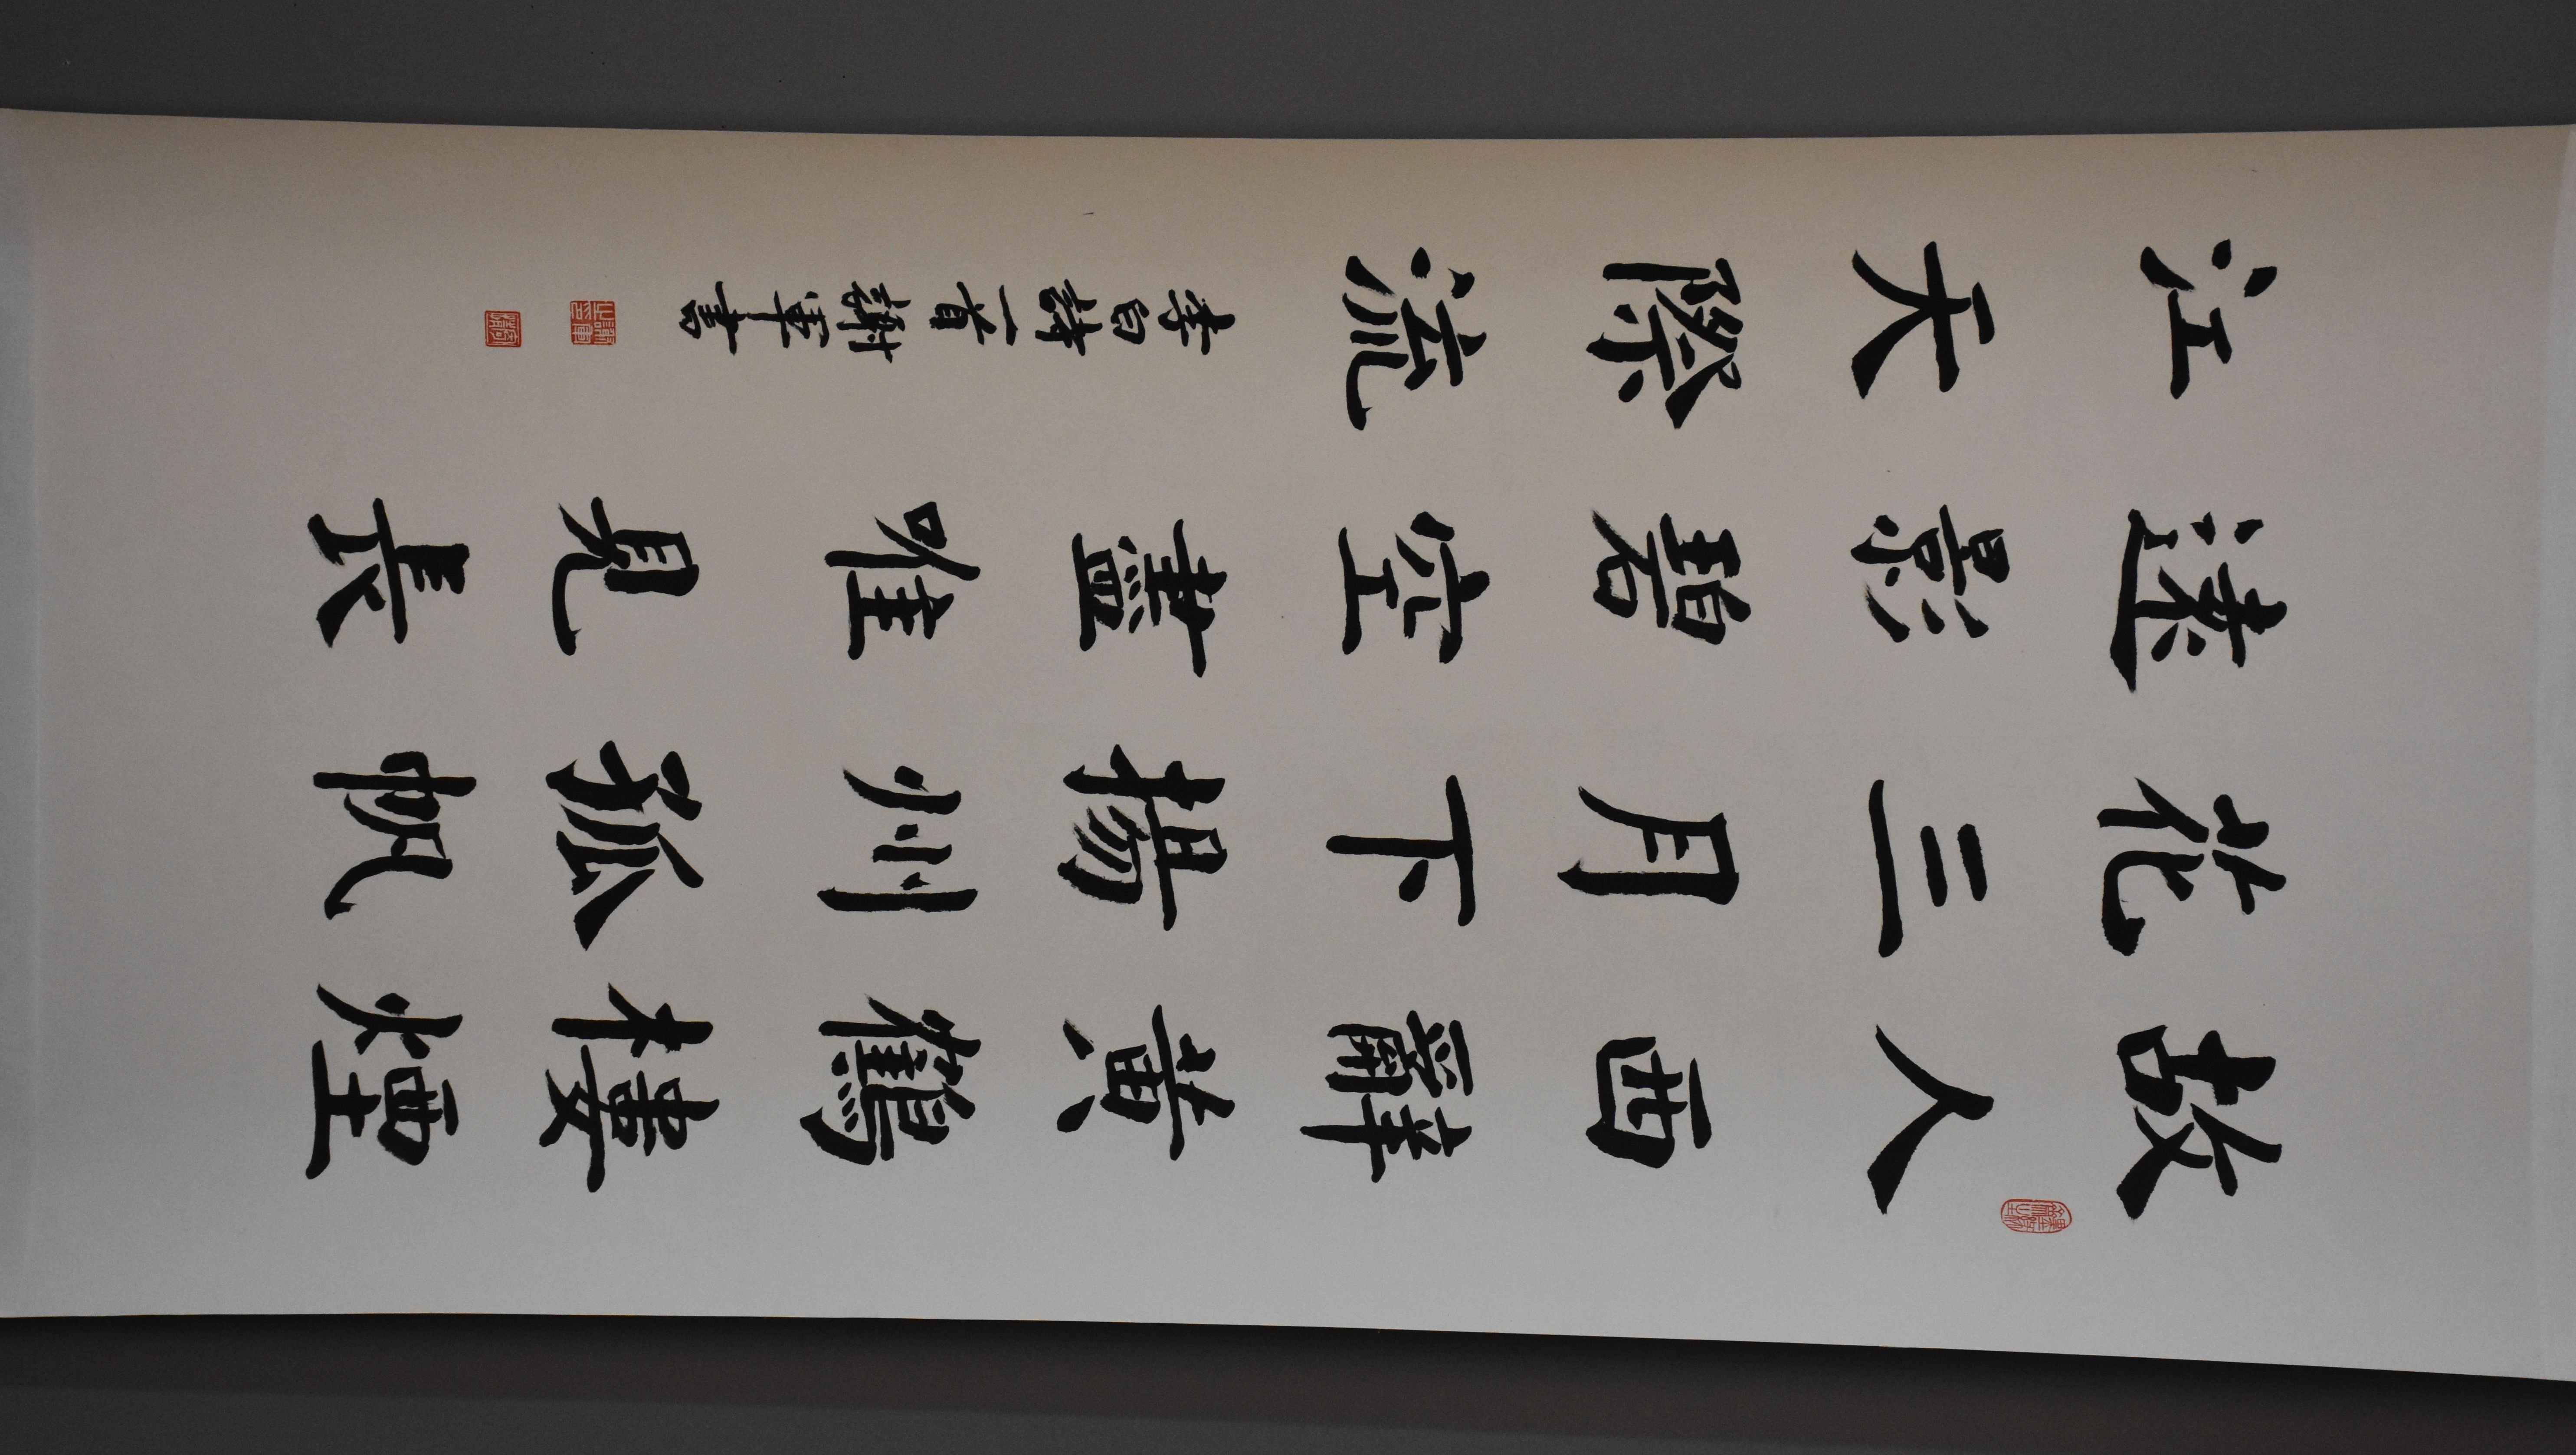 故人西辭黃鶴樓煙
花三月下揚州孤帆
遠影碧空盡唯見長
江天際流
李白詩一首謝軍書